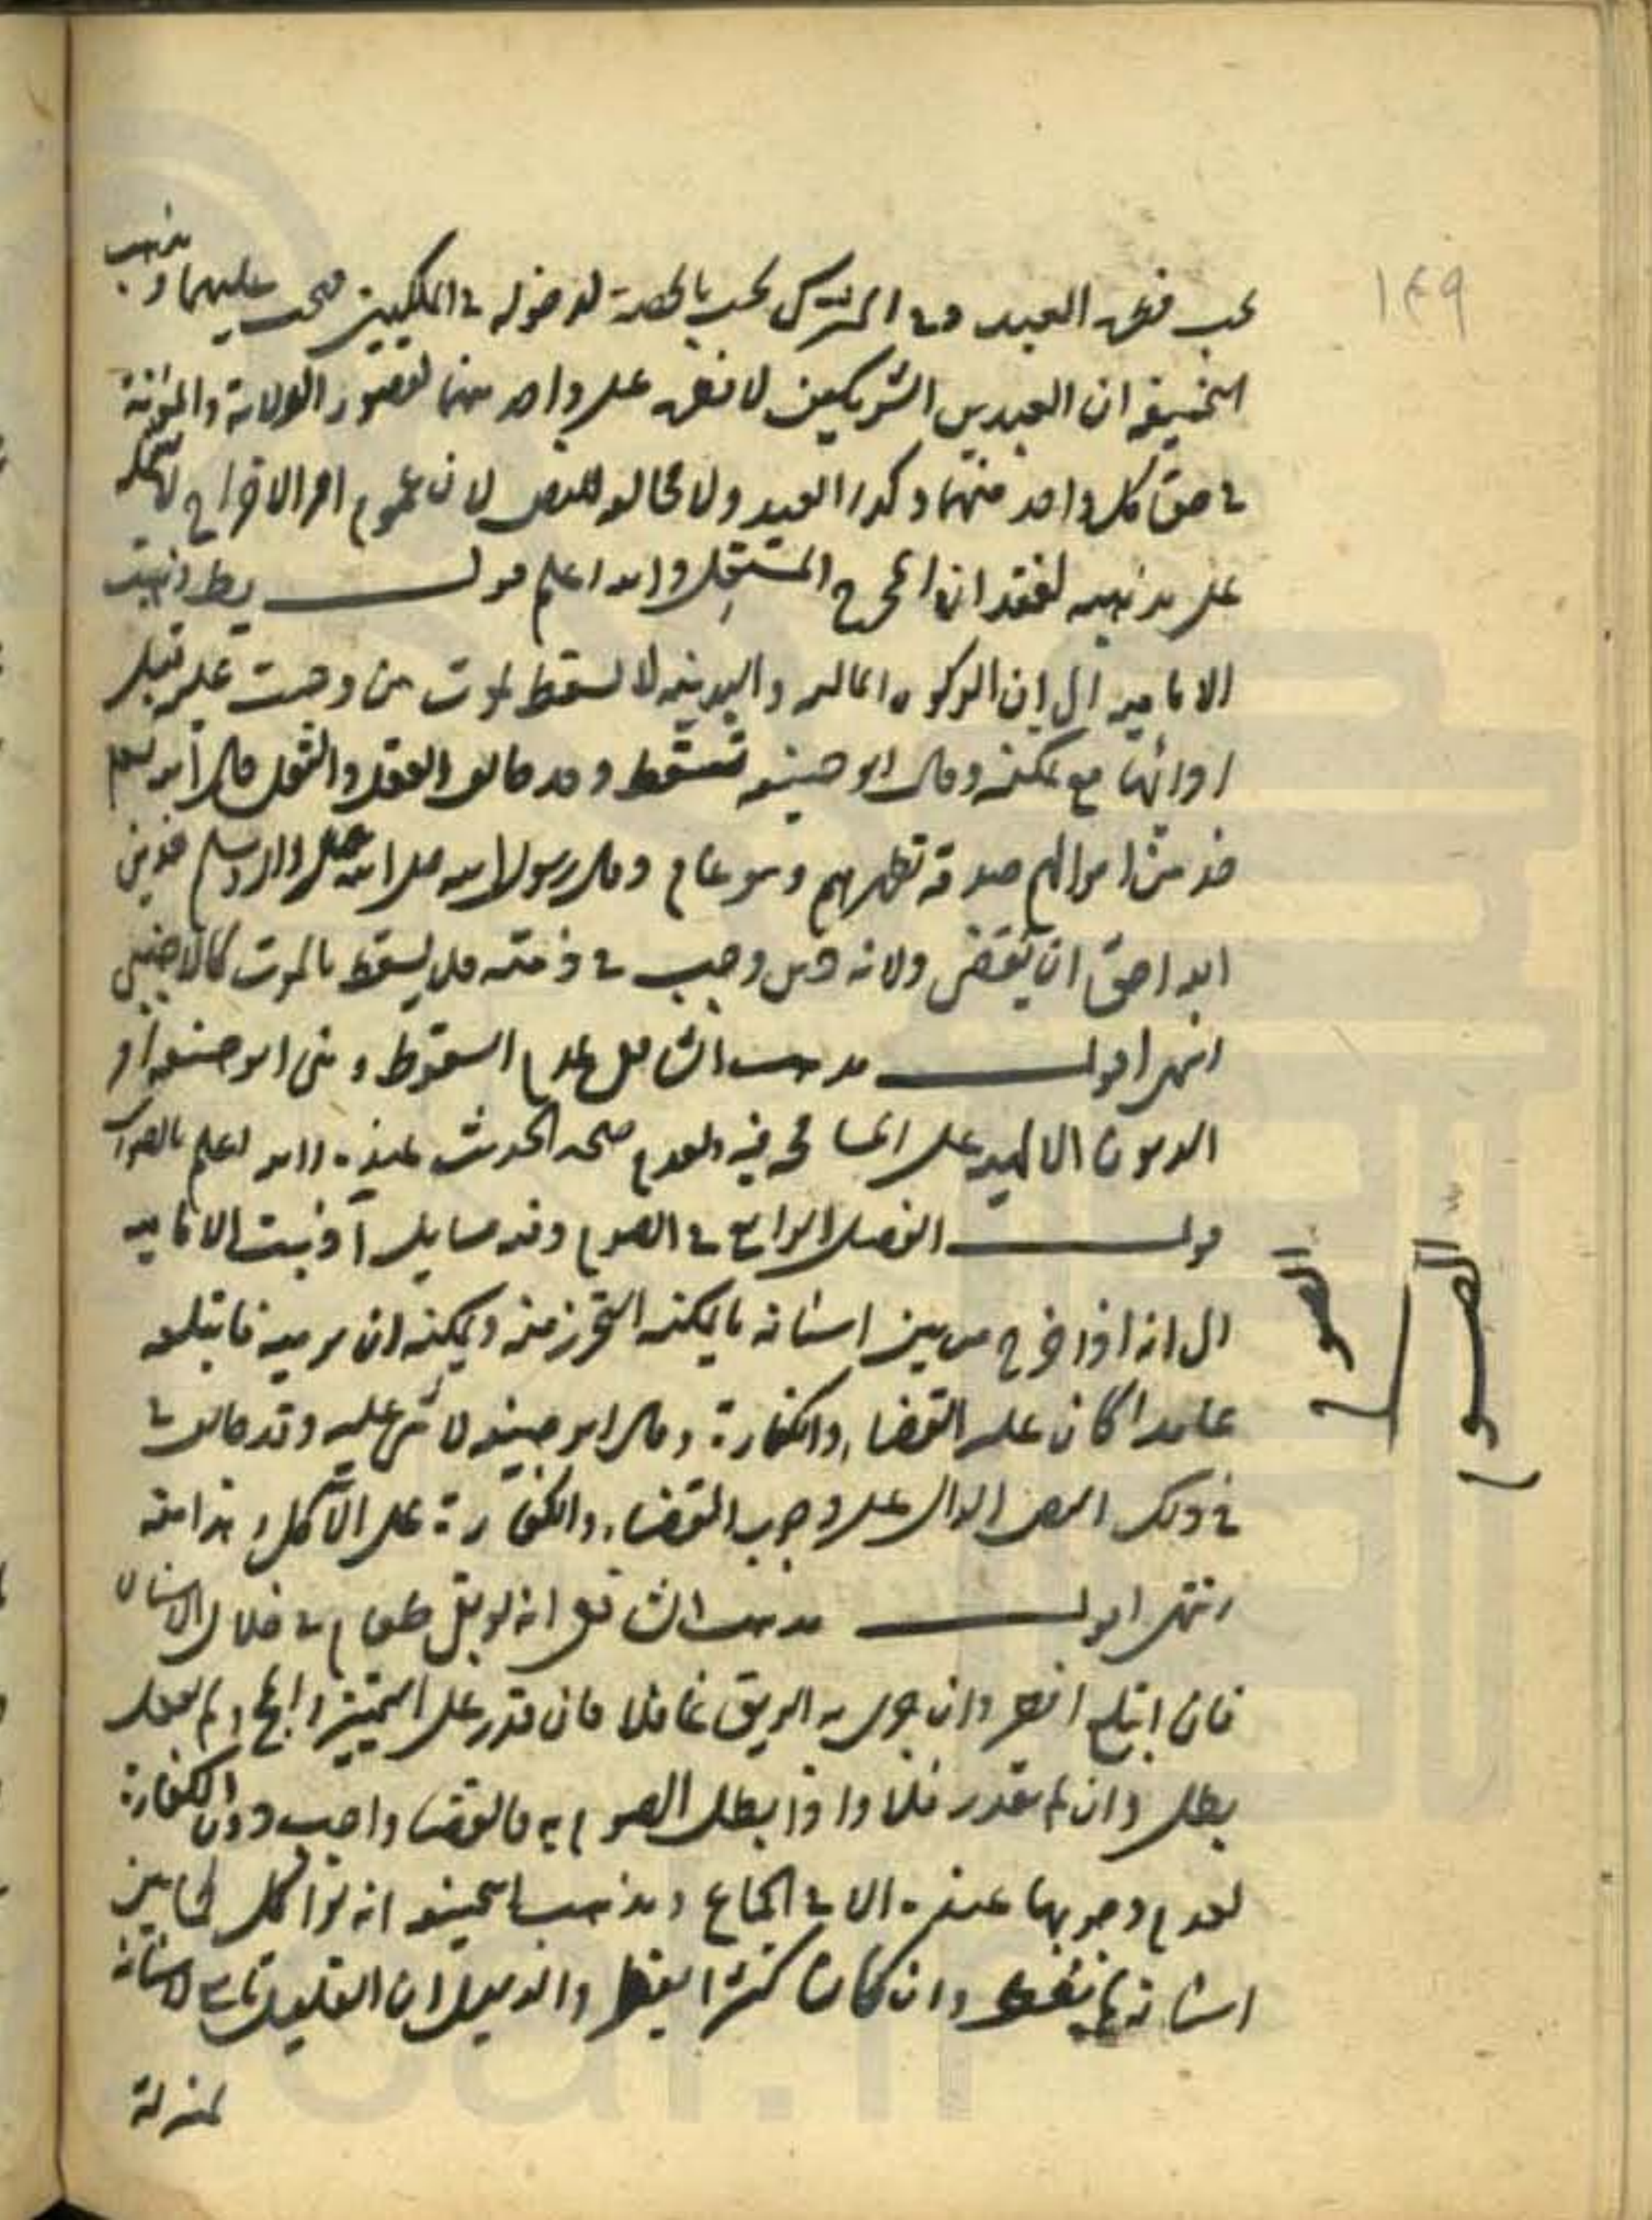 ١٤٩
يجب فى العبد وفى المشترك يجب بالحصة لدخوله فى الملكين فيجب عليهما ومذهب
الحنيفة ان العبد بين الشريكين لا فطرة على واحد منهما لقصور الولاية والمؤنة
فى حق كل واحد منهما وكذا العبيد ولا مخالف للنص لان عموم امر الاخراج لا
على مذهبه لفقدان المخرج المستقل والله اعلم قولـــه يط ذهبت
الامامية الى ان الزكوة المالية والبدنية لا تسقط بموت من وجبت عليه قبل
ادائها مع تمكنه وقال ابو حنيفة تسقط وقد خالف العقل والنقل قال الله تعالى
خذ من اموالهم صدقة تطهرهم وهو عام وقال رسول الله صلى الله عليه واله وسلم فدين
الله احق ان يقضى ولانه دين وجب فى ذمته فلا يسقط بالموت كالاجنبى
انتهى اقولـــ مذهب الشافعى عدم السقوط وبنى ابو حنيفة امر
الديون الالهية على المسامحة فيه ولعدم صحة الحديث عنده والله اعلم بالصواب
قولـــ الفصل الرابع فى الصوم وفيه مسايل آ ذهبت الامامية
الى انه اذا خرج من بين اسنانه ما يمكنه التحرز منه ويمكنه ان يرميه فابتلعه
عامدا كان عليه القضاء والكفارة وقال ابو حنيفة لا شى عليه وقد خالف
فى ذلك النص الدال على وجوب القضاء والكفارة على الآكل وهذا منه
انتهى اقولـــ مذهب الشافعى انه لو بقى طعام فى خلال الاسنان
فان ابتلع افطر وان جرى به الريق غافلا فان قدر على التمييز والمج ولم يفعل
بطل وان لم يقدر فلا واذا بطل الصوم به فالقضاء واجب دون الكفارة
لعدم وجوبها عنده الا فى الجماع ومذهب ابى حنيفة انه لو اكل لما بين
اسنانه لم يفطر وان كان كثيرا يفطر والدليل ان القليل تابع لاسنانه
بمنزلة
الصوم
الصوم